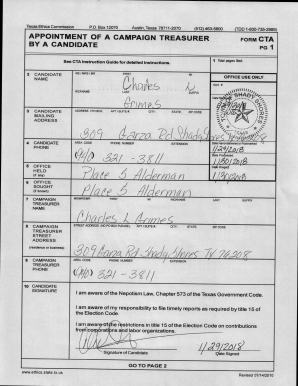 Texas Ethics Commission P.O. Box 12070 Austin, Texas 78711-2070 (512) 463-5800 (TDD 1-800-735-2989)
APPOINTMENT OF A CAMPAIGN TREASURER BY A CANDIDATE
FORM CTA
PG 1
See CTA Instruction Guide for detailed instructions.
1 Total pages filed:
2 CANDIDATE NAME
MS / MRS / MR FIRST MI
Charles L
NICKNAME LAST SUFFIX
Grimes
OFFICE USE ONLY
3 CANDIDATE MAILING ADDRESS
ADDRESS / PO BOX; APT / SUITE #; CITY; STATE; ZIP CODE
309 Garza Rd Shady Shores
4 CANDIDATE PHONE
AREA CODE PHONE NUMBER EXTENSION
321-3811
1/29/2018
5 OFFICE HELD (if any)
Place 5 Alderman
1/30/2018
6 OFFICE SOUGHT (if known)
Place 5 Alderman
1/30/2018
7 CAMPAIGN TREASURER NAME
MS/MRS/MR FIRST MI NICKNAME LAST SUFFIX
Charles L Grimes
8 CAMPAIGN TREASURER STREET ADDRESS
(residence or business)
STREET ADDRESS (NO PO BOX PLEASE); APT / SUITE #; CITY; STATE; ZIP CODE
309 Garza Rd Shady Shores TX 76208
9 CAMPAIGN TREASURER PHONE
AREA CODE PHONE NUMBER EXTENSION
321-3811
10 CANDIDATE SIGNATURE
I am aware of the Nepotism Law, Chapter 573 of the Texas Government Code.
I am aware of my responsibility to file timely reports as required by title 15 of the Election Code.
I am aware of the restrictions in title 15 of the Election Code on contributions from corporations and labor organizations.
1/29/2018
Signature of Candidate Date Signed
GO TO PAGE 2
www.ethics.state.tx.us